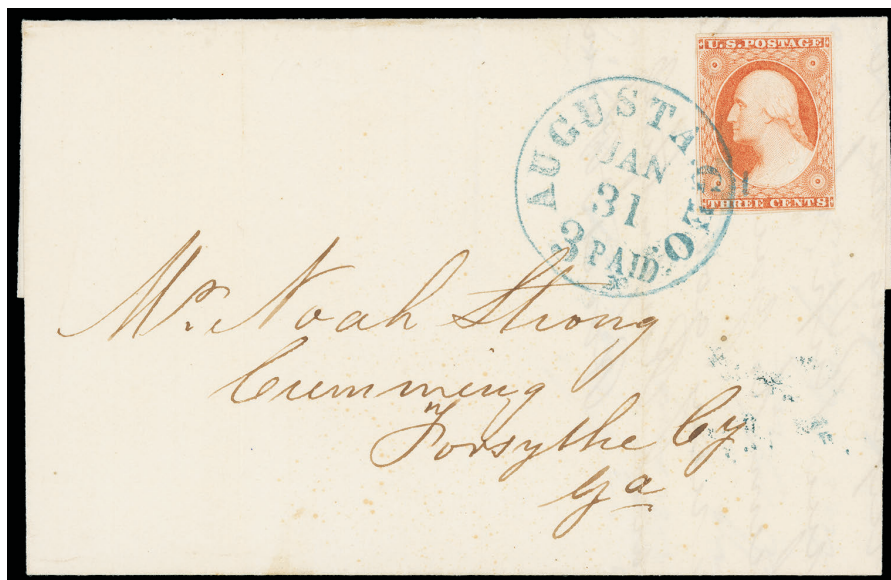 U.S. POSTAGE
THREE CENTS
AUGUSTA GEO.
JAN
31
3 PAID
Mr. Noah Strong
Cumming
Forsythe Cy
Ga